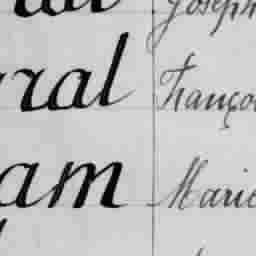 Joseph
ral Franço
am Marie